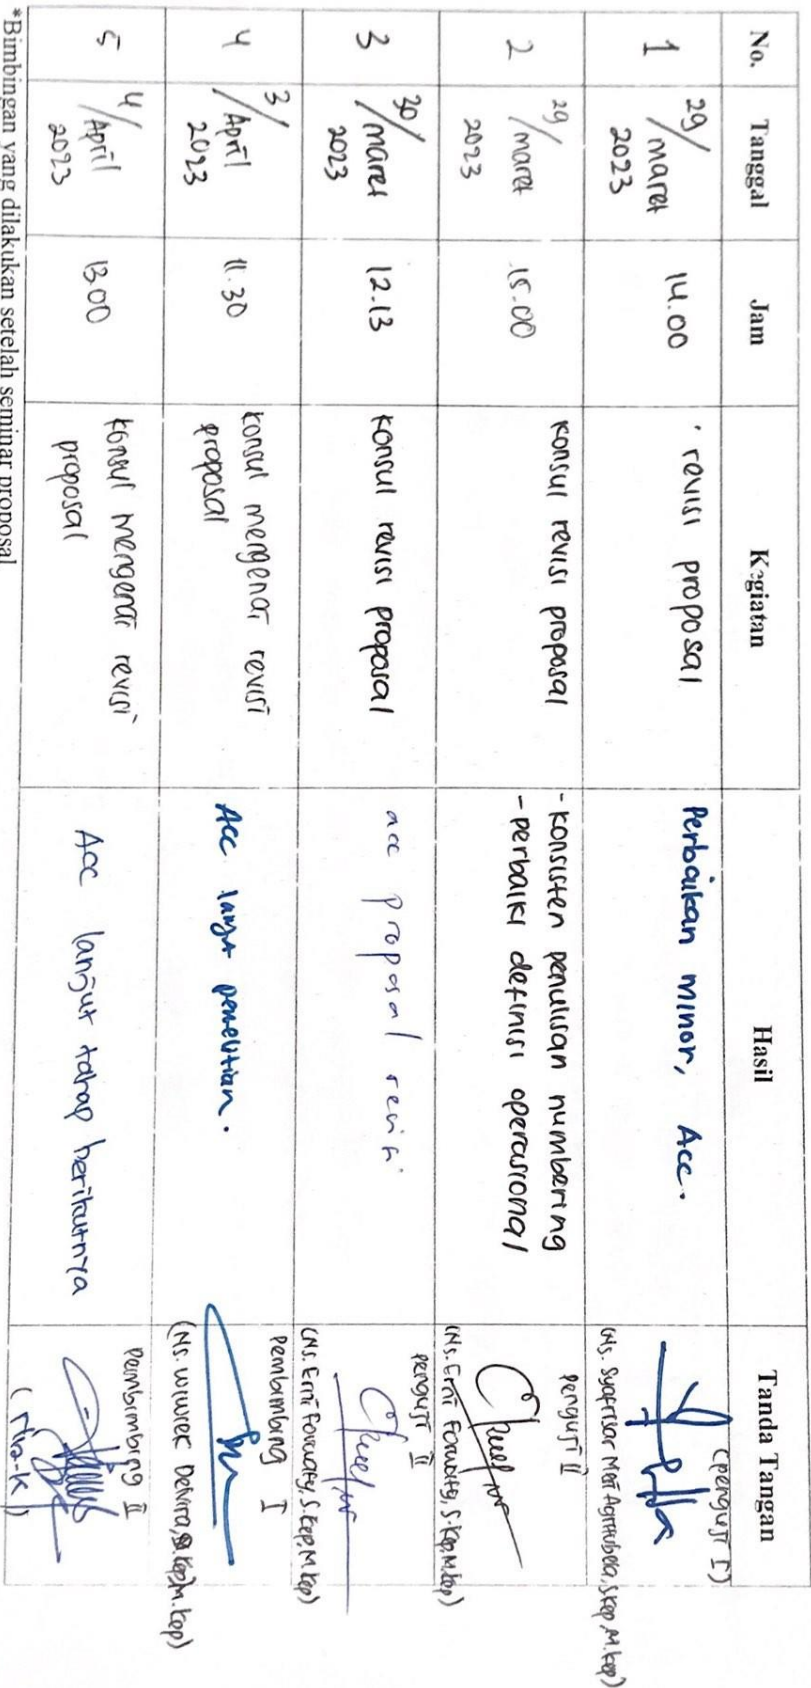 No. Tanggal Jam Kegiatan Hasil Tanda Tangan
1 29/maret 2023 14.00 revisi proposal Perbaikan minor, Acc. (penguji I)
(Ns. Meri S.kep, M.kep)
2 29/maret 2023 15.00 konsul revisi proposal - konsisten penulisan numbering penguji II
- perbaiki definisi operasional
(Ns. Erni S.kep, M.kep)
3 30/maret 2023 12.13 konsul revisi proposal acc proposal revisi penguji II
(Ns. Erni S.kep, M.kep)
4 3/April 2023 11.30 konsul mengenai revisi Acc lanjut penelitian. Pembimbing I
proposal
(Ns. Wiwiek M.kep)
5 4/April 2023 13.00 konsul mengenai revisi Acc lanjut tahap berikutnya Pembimbing II
proposal
*Bimbingan yang dilakukan setelah seminar proposal